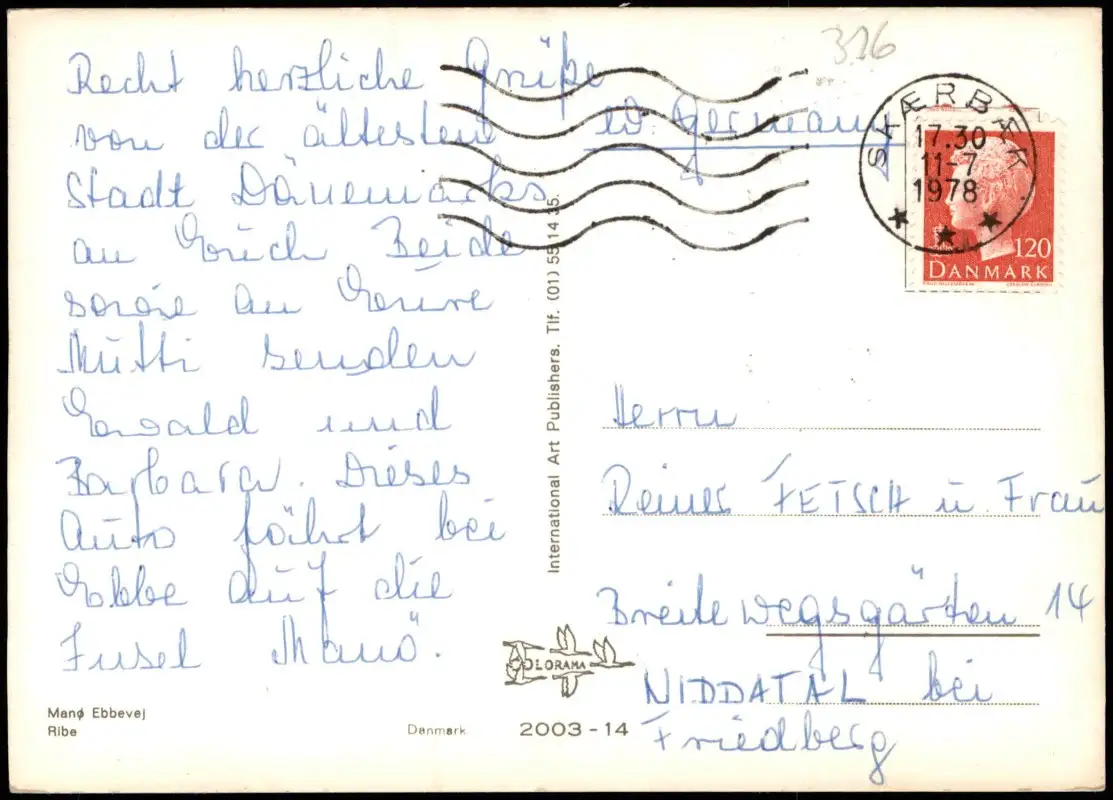 Recht herzliche Grüße
von der ältesten
Stadt Dänemarks
an Euch Beide
sowie an Eure
Mutti senden
Ewald und
Barbara. Dieses
Auto fährt bei
Ebbe auf die
Insel Manö.
Manø Ebbevej
Ribe
Danmark
2003-14
COLORAMA
International Art Publishers. Tlf. (01) 55 14 35.
316
W. Germany
SKÆRBÆK
17.30
11-7
1978
120
DANMARK
Herrn
Reiner FETSCH u. Frau
Breite wegsgärten 14
NIDDATAL bei
Friedberg